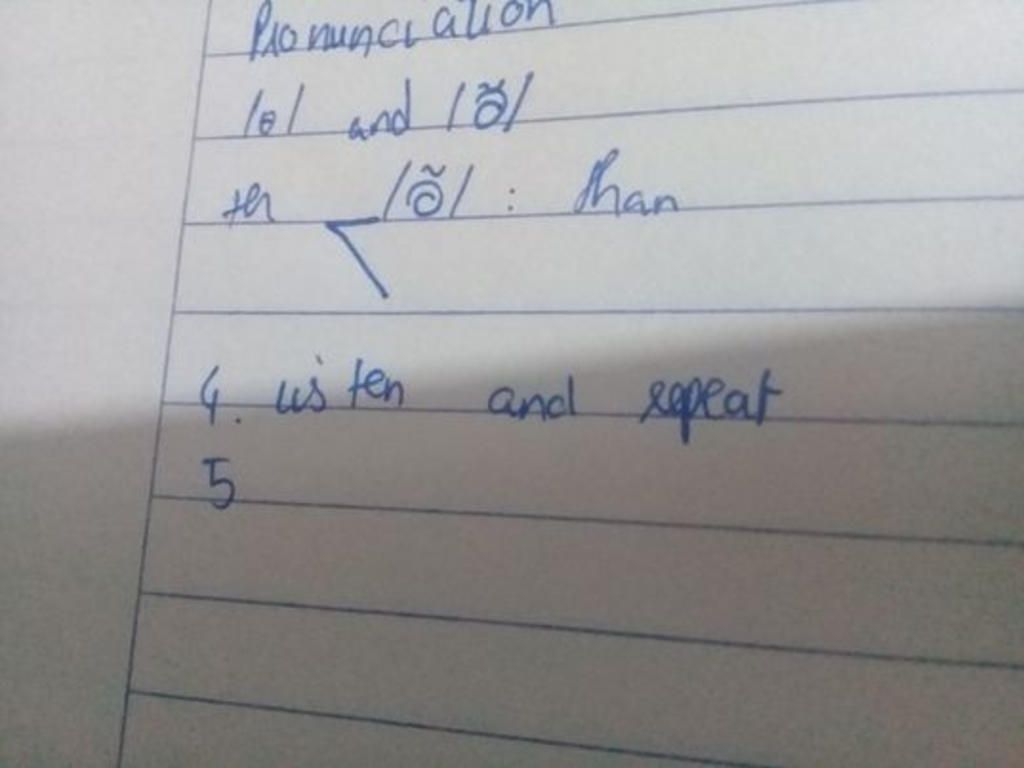 Pronunciation
/θ/ and /ð/
th /ð/ : than
4. listen and repeat
5